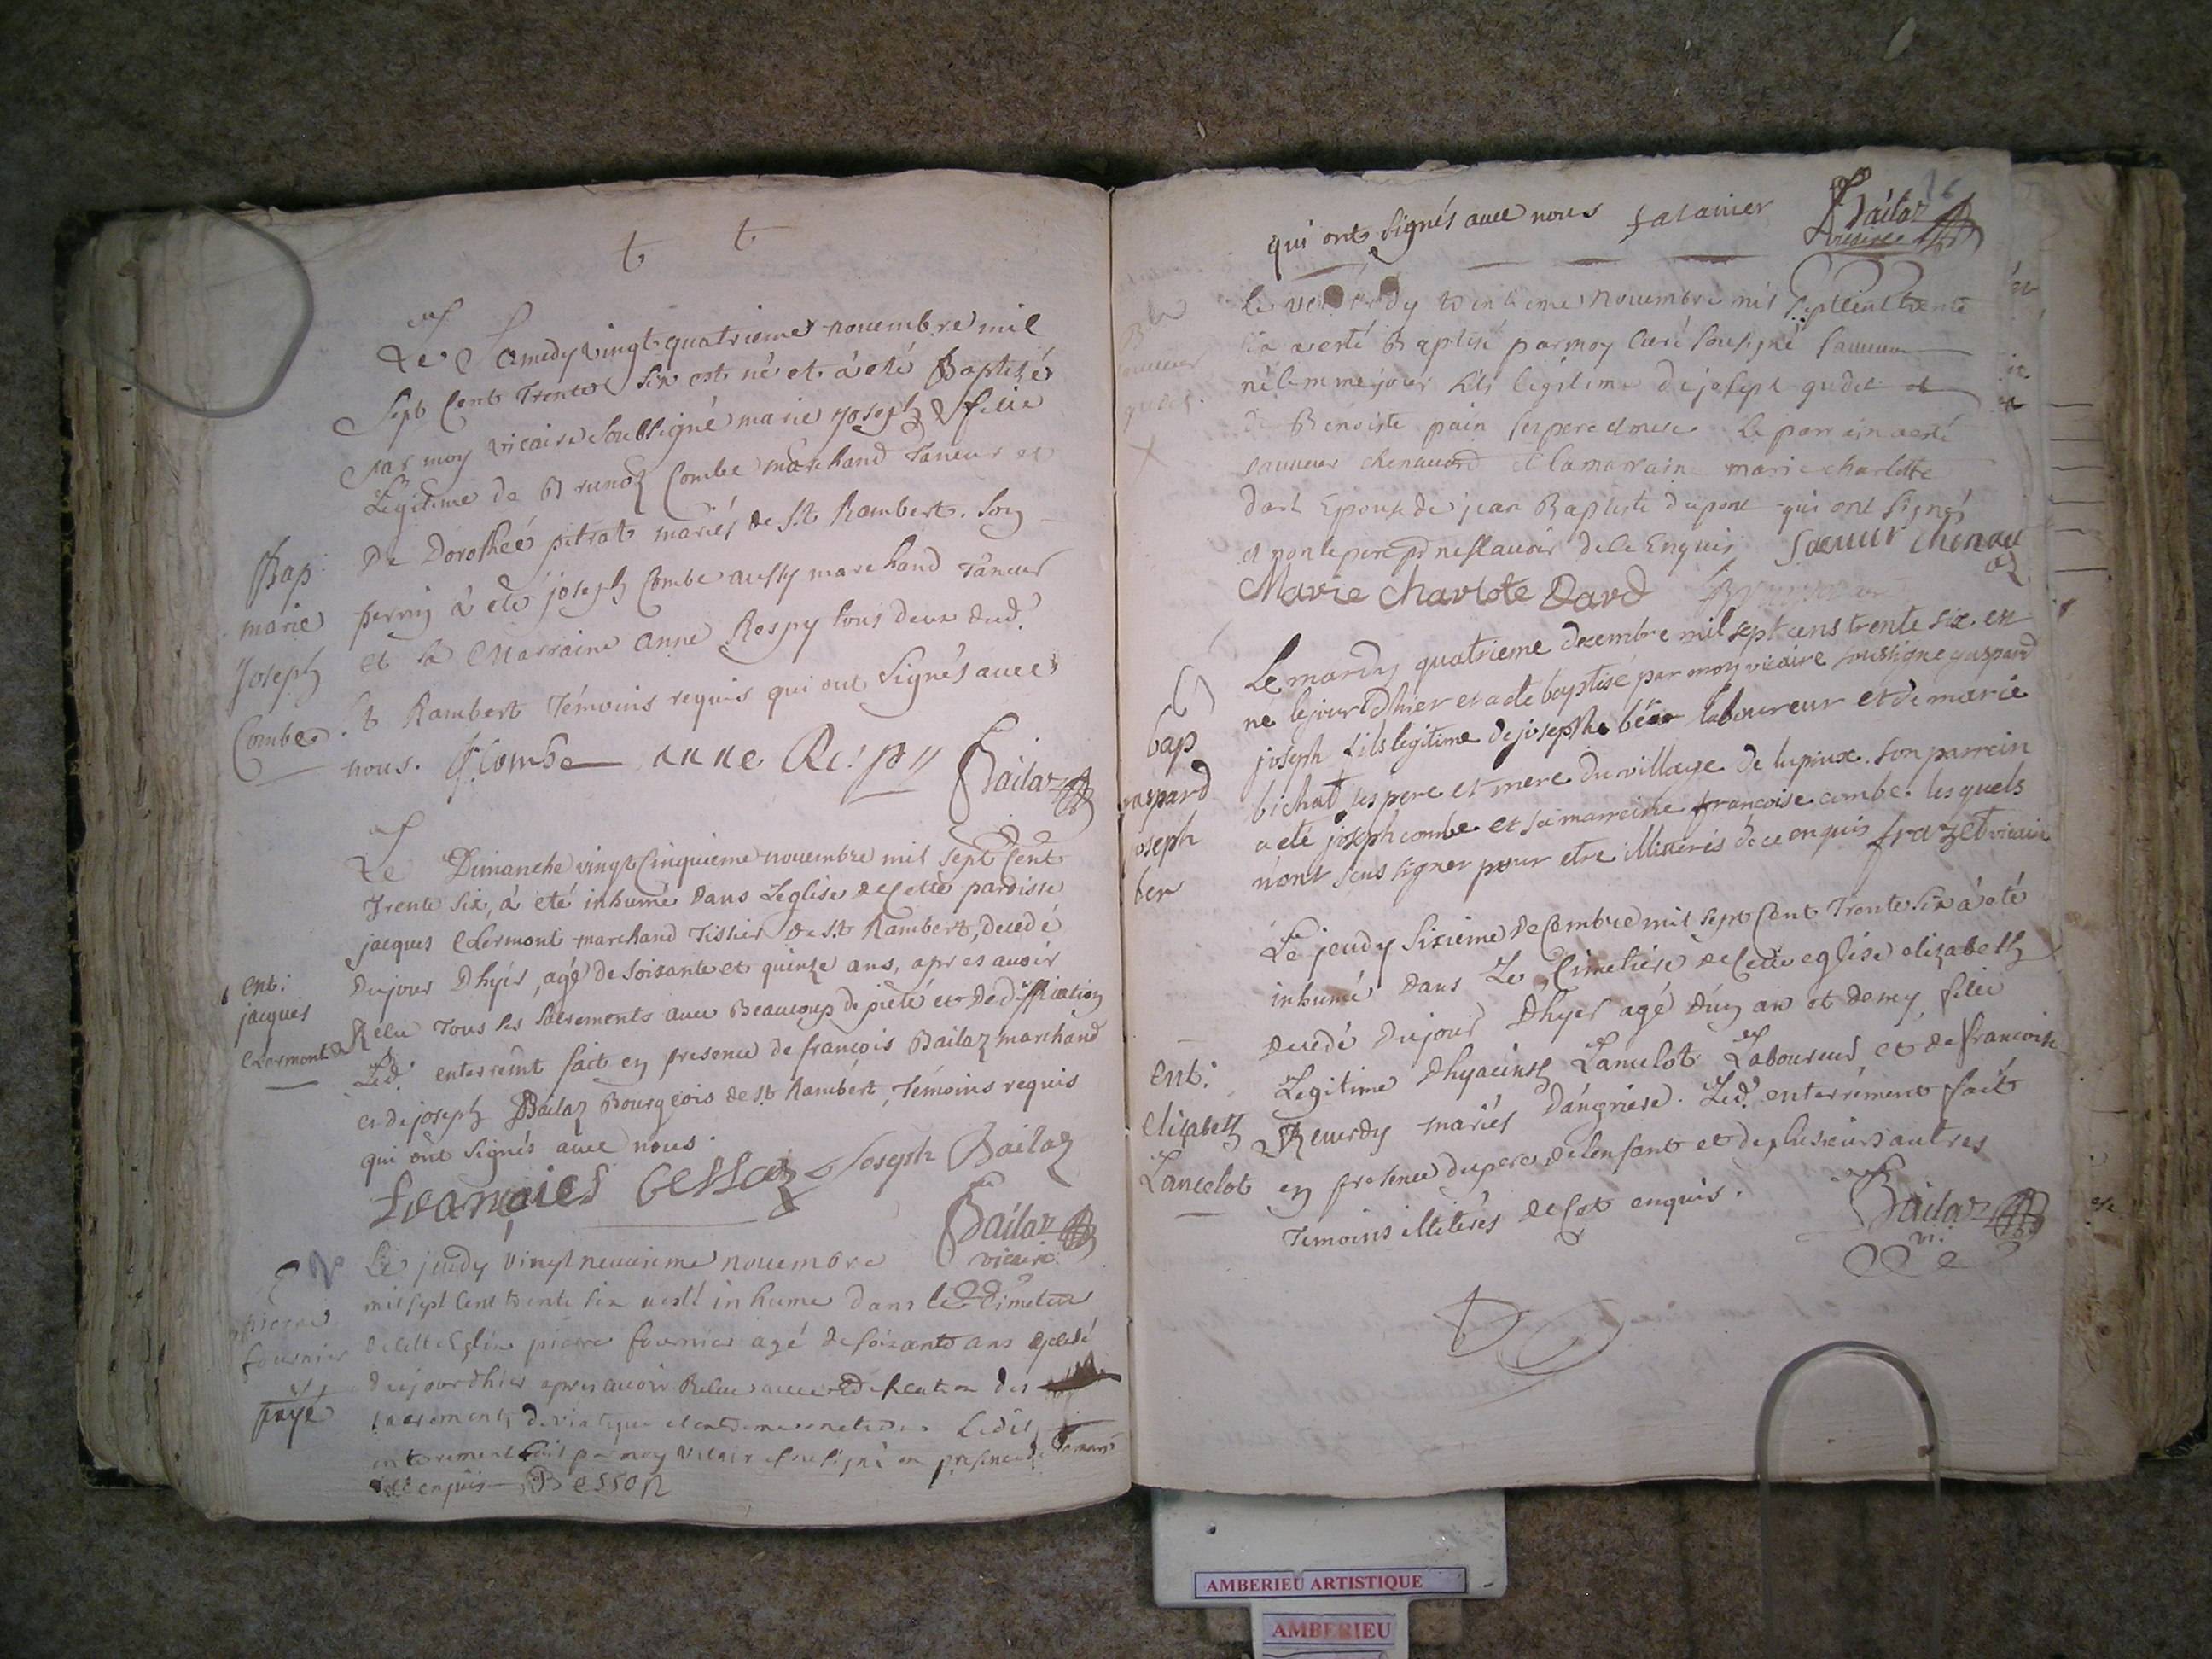 Le Samedy vingt quatrieme novembre mil
Sept Cent Trente Six est né et à eté Baptizé
par moy vicaire Soubsigné marie Joseph filie
Legitime de Brunoz Combe marchand Taneur et
De Dorothée pitrat mariés de St Rambert. Son
perrin à eté joseph Combe aussy marchand Taneur
et sa Marraine Anne Respy tous deux dud.
St Rambert Témoins requis qui ont signés avec
nous. J Combe anne Respy Bailaz
Bap:
marie
Joseph
Combe
Le Dimanche vingt Cinquieme novembre mil sept Cent
Trente Six, à eté inhumé dans L'eglise de Cette paroisse
jacques Clermont marchand Tissier de St Rambert, decedé
Dujour Dhyér, agé de soixante et quinze ans, apres avoir
Relu Tous ses Sacrements avec Beaucoup de pieté et Dediffication
Led. enterremt fait en presence de françois Bailaz marchand
et de joseph Bailaz Bourgeois de St Rambert, Témoins requis
qui ont signés avec nous.
Joseph Bailaz
Bailaz
vicaire
ent:
jacques
Clermont
Le jeudy vingt neuvieme novembre
mil sept Cent trente six a esté inhume dans le Cimetier
de Cette Eglise pierre fournier agé de soixante ans decedé
dujourdhier apres avoir Relu avec Edification des
sacrements de viatique et Ledit
enterrement fait par moy vicair soussigné en presence de Temoins
enquis Besson
pierre
fournier
payé
qui ont signés avec nous Bailaz
vicaire
Le vendredy trentieme novembre mil Septcent trente
six a esté Baptisé par moy Curé Sousigné Sauveur
né le mme jour fils legitime de joseph gudet et
de Benoiste pain ses pere et mere Le parrain a esté
sauveur chenavard et la marraine marie charlotte
dard Epouse de jean Baptiste dupont qui ont signés
et non le pere pr ne scavoir de Ce Enquis Sauveur Chenavard
Marie Charlote Dard
gudet
Le mardy quatrieme decembre mil sept cens trente six est
né le jour d'hier et a eté baptisé par moy vicaire soussigné gaspard
joseph fils legitime de joseph bér laboureur et de marie
bichat ses pere et mere du village de lupieux. son parrein
a eté joseph combe et sa marreine francoise combe. lesquels
n'ont sceus signer pour etre illiterés de ce enquis frazet vicaire
bap
gaspard
joseph
ber
Le jeudy Sixieme decembre mil sept Cent Trente Six à eté
inhumé dans Le Cimetiere de Cette eglise elizabeth
decedé Dujour Dhyer agé d'un an et demy filie
Legitime Dhyacinth Lancelot Laboureur et de francoise
Reverdy mariés D'angriere. Led. enterrement fait
en presence du pere de lenfant et de plusieurs autres
Temoins illiterés de Ce enquis. Bailaz
vi.
ent:
elizabeth
Lancelot
AMBERIEU ARTISTIQUE
AMBERIEU